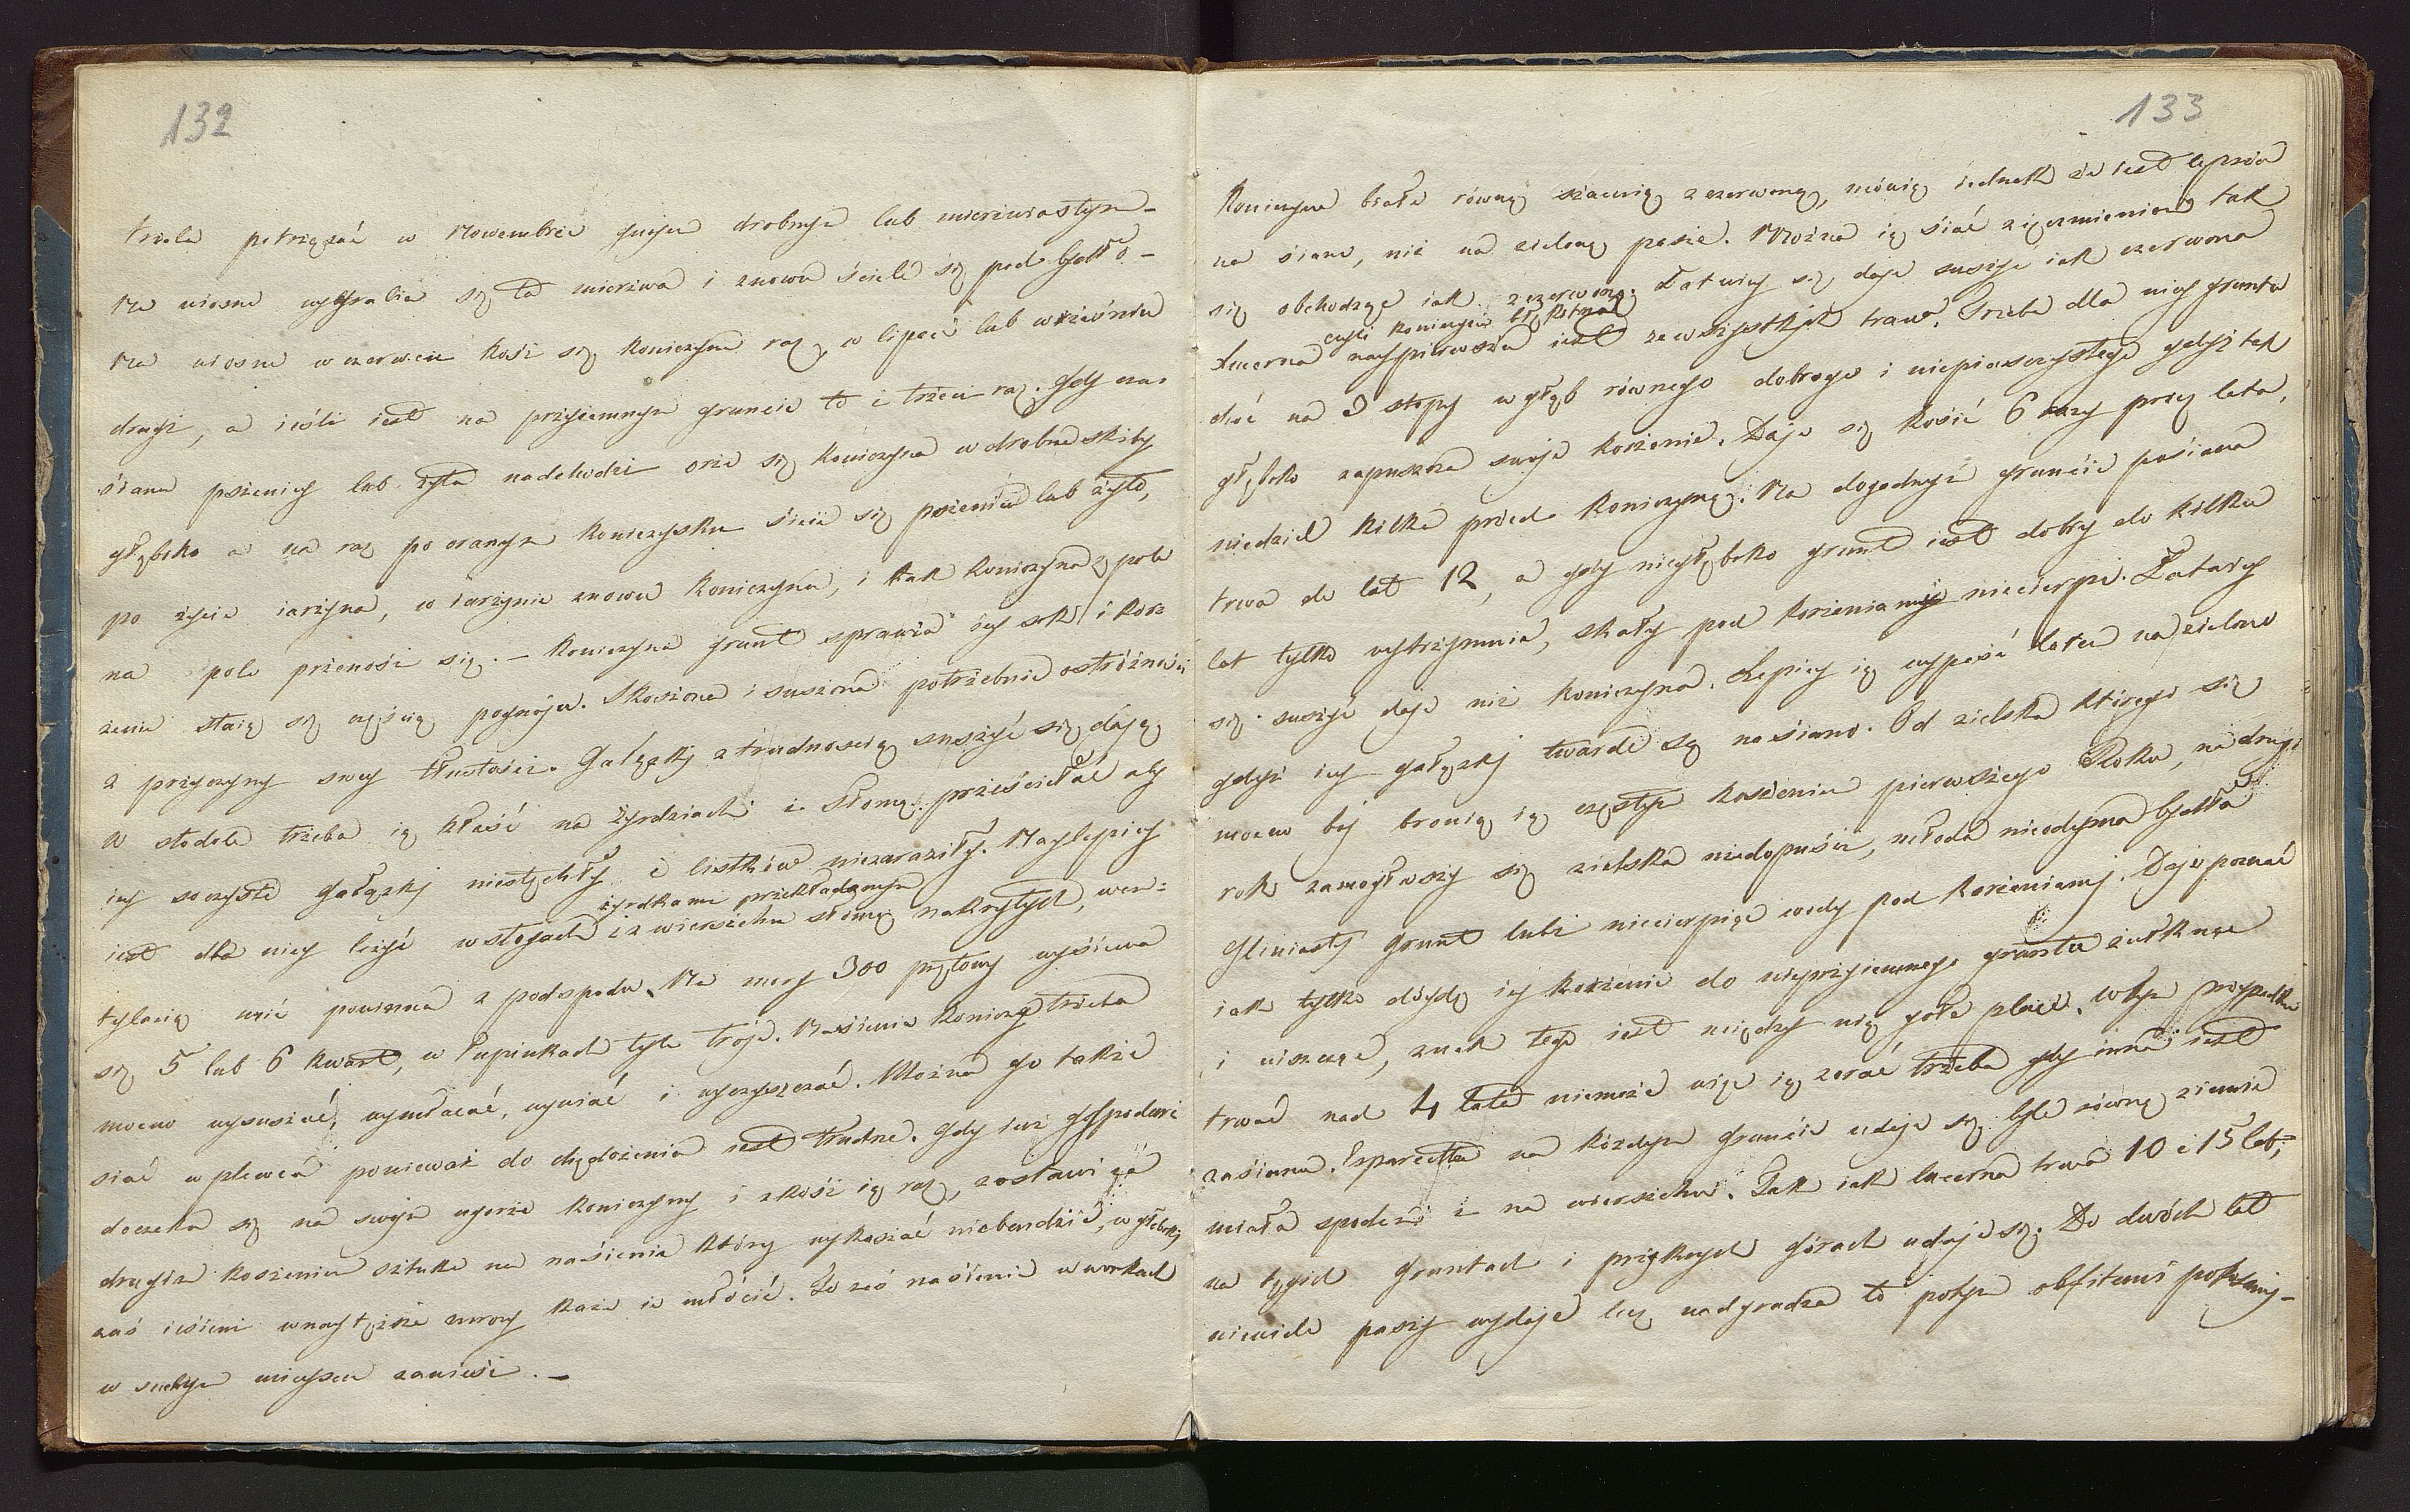 132
trzeba potrząsać w Nowembrze gnojem drobnym lub mierzwiastym –
Na wiosne wygrabia się ta mierzwa i znowu ściele się pod bydło –
Na wiosne w czerwcu kosi się koniczyna raz, w lipcu lub wrześniu
drugi, a ieśli iest na przyiemnym gruncie to i trzeci raz. Gdy czas
siana pszenicy lub żyta nadchodzi orze się koniczyna w drobne skiby
głęboko a na raz po oranym koniczysku sieie się pszenica lub żyto,
po życie iarzyna, w iarzynie znowu koniczyna, i tak koniczyna z pola
na pole przenosi się. – Koniczyna grunt sprawia iey sok i korz
zenie staią się częścią pognoju. Skoszona i suszona potrzebuie ostróżności
z przyczyny swey tłustości. Gałązki z trudnoscią suszyć się dają
W stodole trzeba ią kłaść na żyrdziach i Słomą prześciełać aby
iey soczyste gałązki niestęchły i listków niezaraziły. Naylepiey
żyrdkami przekładanym
iest dla niey leżyć w stogach i z wierzchu słomą nakrytych, wen=
tylacią mić powinna z podspodu. Na morg 300 prętowy wysiewa
się 5 lub 6 kwart, w łupinkach tyle troje. Nasienie koniczy trzeba
mocno wysuszać, wymłacać, wywiać i wyczyszczać. Można go także
siać w plewca ponieważ do chędożenia iest trudne. Gdy iuż gospodarz
doczeka się na swym ugorze koniczyny i zkosi ią raz, zostawi za
drugim koszeniem sztuke na nasienie który wykaszać niebendzie, w głębokiey
zaś iesieni w naytęższe mrozy każe ie młócić. To zaś nasienie w workach
w suchym mieyscu zawiesi. –
133
Koniczyna biała równą szacuią z czerwoną, mówią iednak że iest lepsza
na siano, niż na zieloną pasze. Można ią siać z ięczmieniem tak
się obchodząc iak z czerwoną. Łatwiey się daje suszyć iak czerwona
czyli koniczyna błękitna
Lucerna naypierwsza iest ze wszystkich traw. Trzeba dla niey gruntu
choć na 3 stopy w głąb równego dobrego i niepiasczystego gdyż tak
głęboko zapuszcza swoje korzenie. Daje się kosić 6 razy przez lato,
niedziel kilka przed koniczyną. Na dogodnym gruncie posiana
trwa do lat 12, a gdy niegłęboko grunt iest dobry do kilku
lat tylko wytrzymuie, skały pod korzeniami niecierpi. Łatwiey
się suszyć daje niż koniczyna. Lepiey ią wypaść latem na zielono
gdyż iey gałązki twarde są na siano. Od zielska którego się
mocno boj bronią ią częstym koszeniem pierwszego Roku, na drugi
rok zamogłwszy się zielska niedopuści, młoda nieodyma bydła
Gliniasty grunt lubi niecierpiąc wody pod korzeniami. Daje poznać
iak tylko dóydą iey korzenie do nieprzyiemnego gruntu żułknąc
i niszcząc, znak tego iest między nią gołe place. W tym przypadku
trwać nad 4 lata niemoże więc ią zorać trzeba gdy inna iest
zasiana. Esparcetta na każdym gruncie udaje się byle równą ziemie
miała spodem i na wierzchu. Tak iak lucerna trwa 10 i 15 lat;
na tęgich gruntach i przykrych górach udaje się. Do dwóch lat
niewiele paszy wydaje lecz nadgradza to potym obfitemi